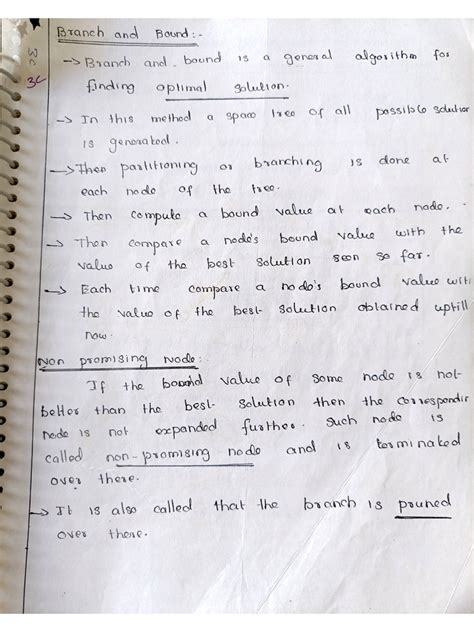 Branch and Bound:-
→ Branch and bound is a general algorithm for
finding optimal solution.
→ In this method a space tree of all possible solution
is generated.
→ Then partitioning or branching is done at
each node of the tree.
→ Then compute a bound value at each node.
→ Then compare a node's bound value with the
value of the best solution seen so far.
→ Each time compare a node's bound value wit
the value of the best solution obtained uptill
now.
Non promising Node:-
If the bound value of some node is not
better than the best solution then the correspondin
node is not expanded further. Such node is
called non-promising node and is terminated
over there.
→ It is also called that the branch is pruned
over there.